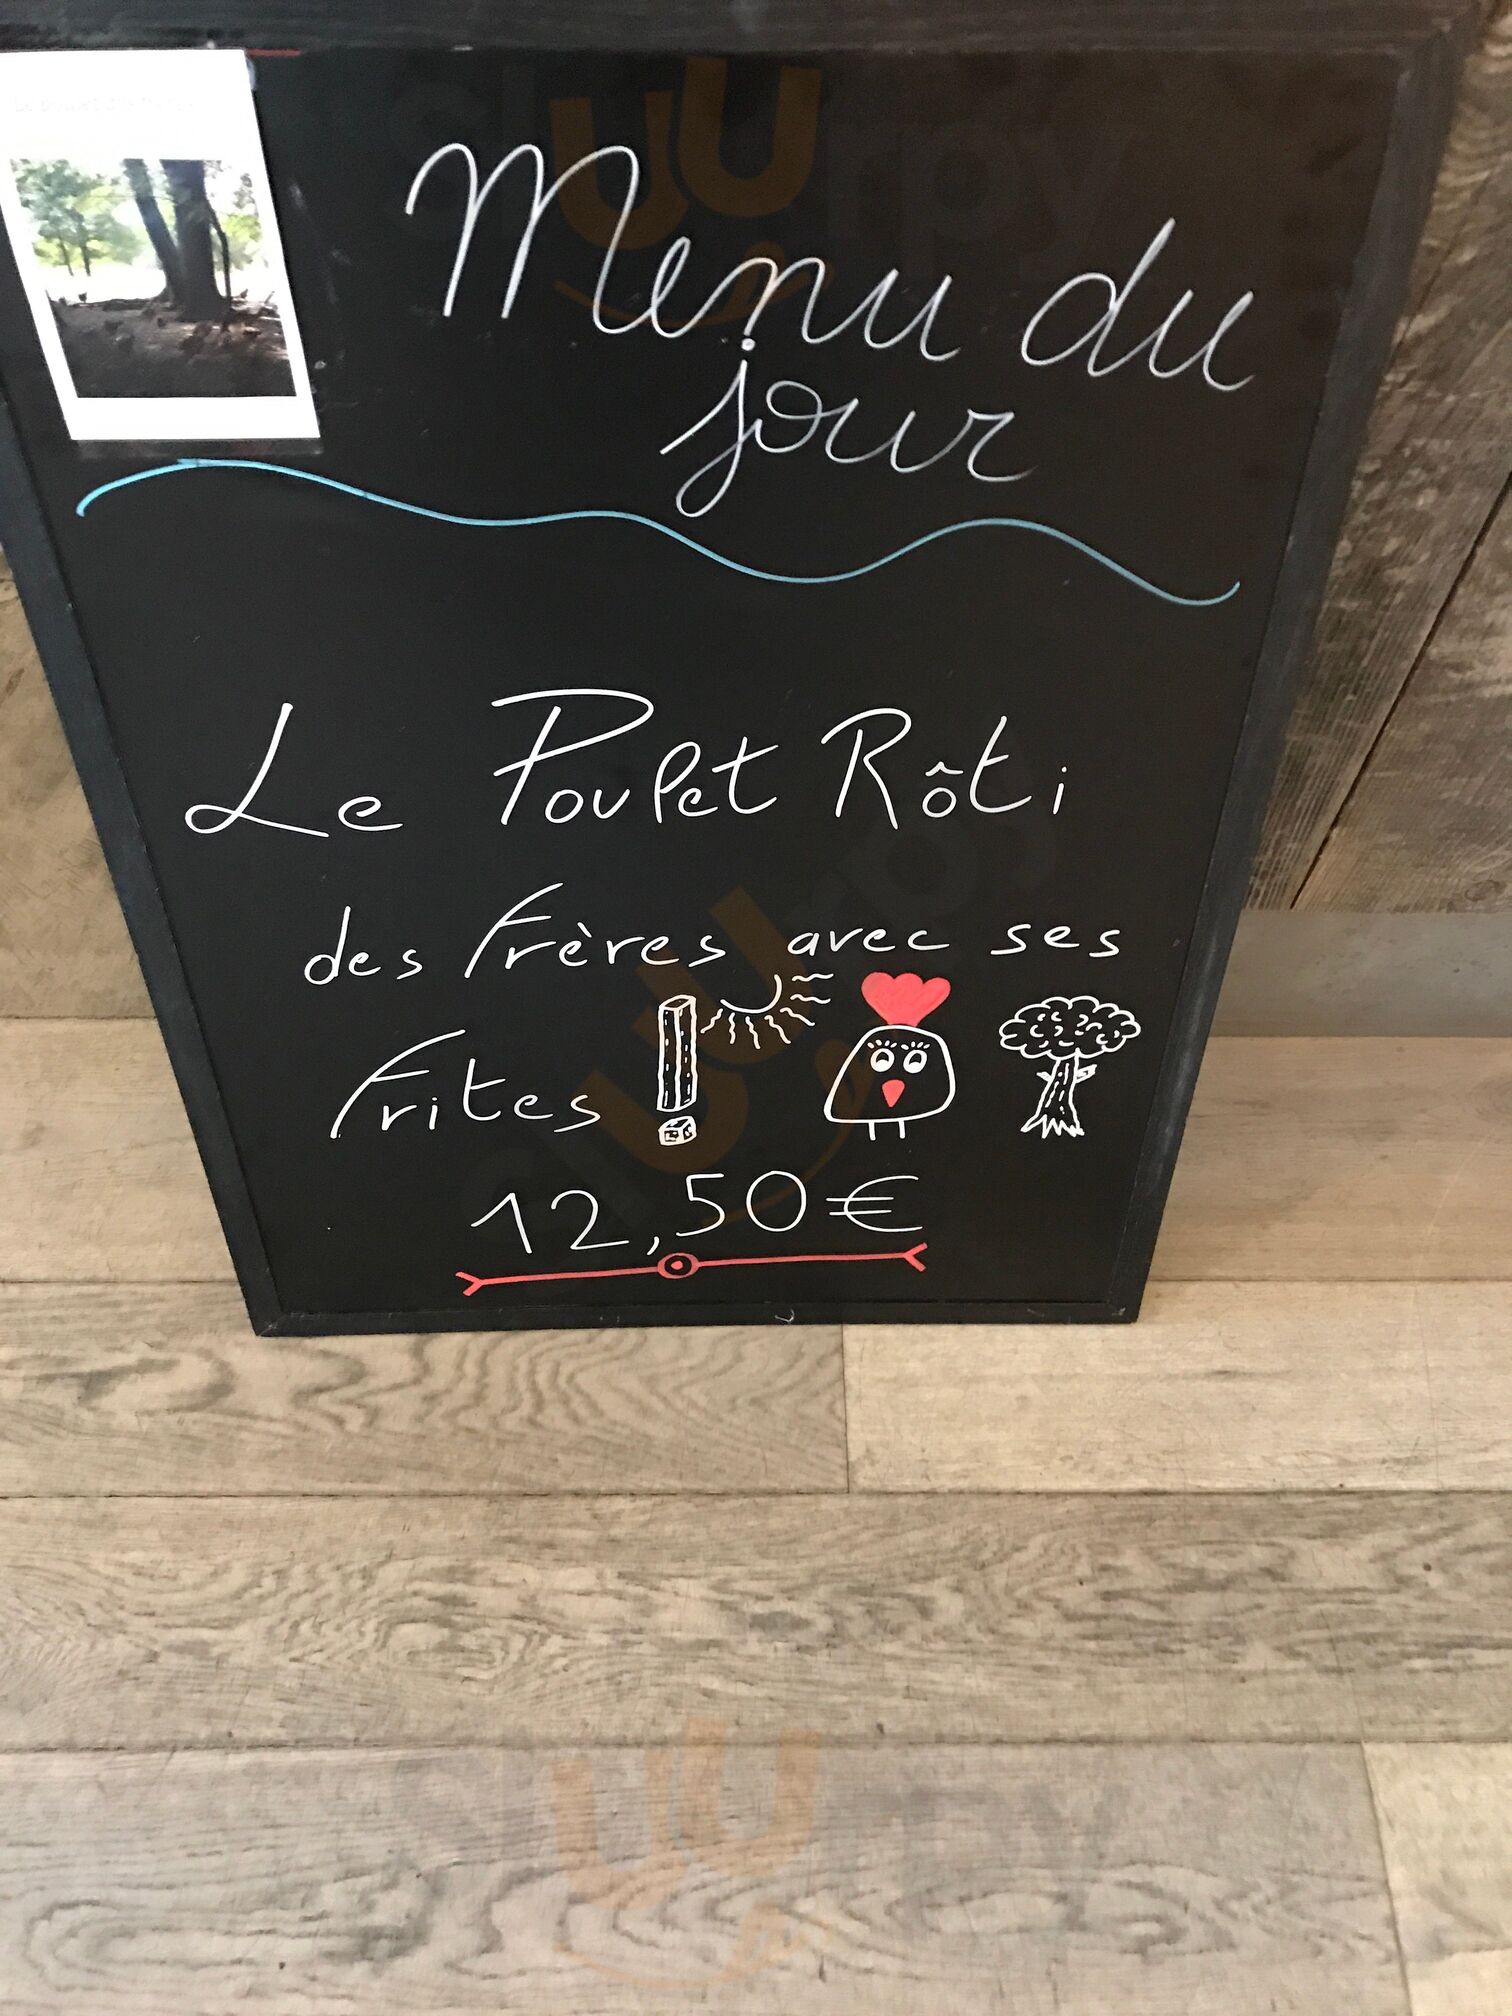 Menu du
jour
Le Poulet Rôti
des Frères avec ses
Frites !
12,50€